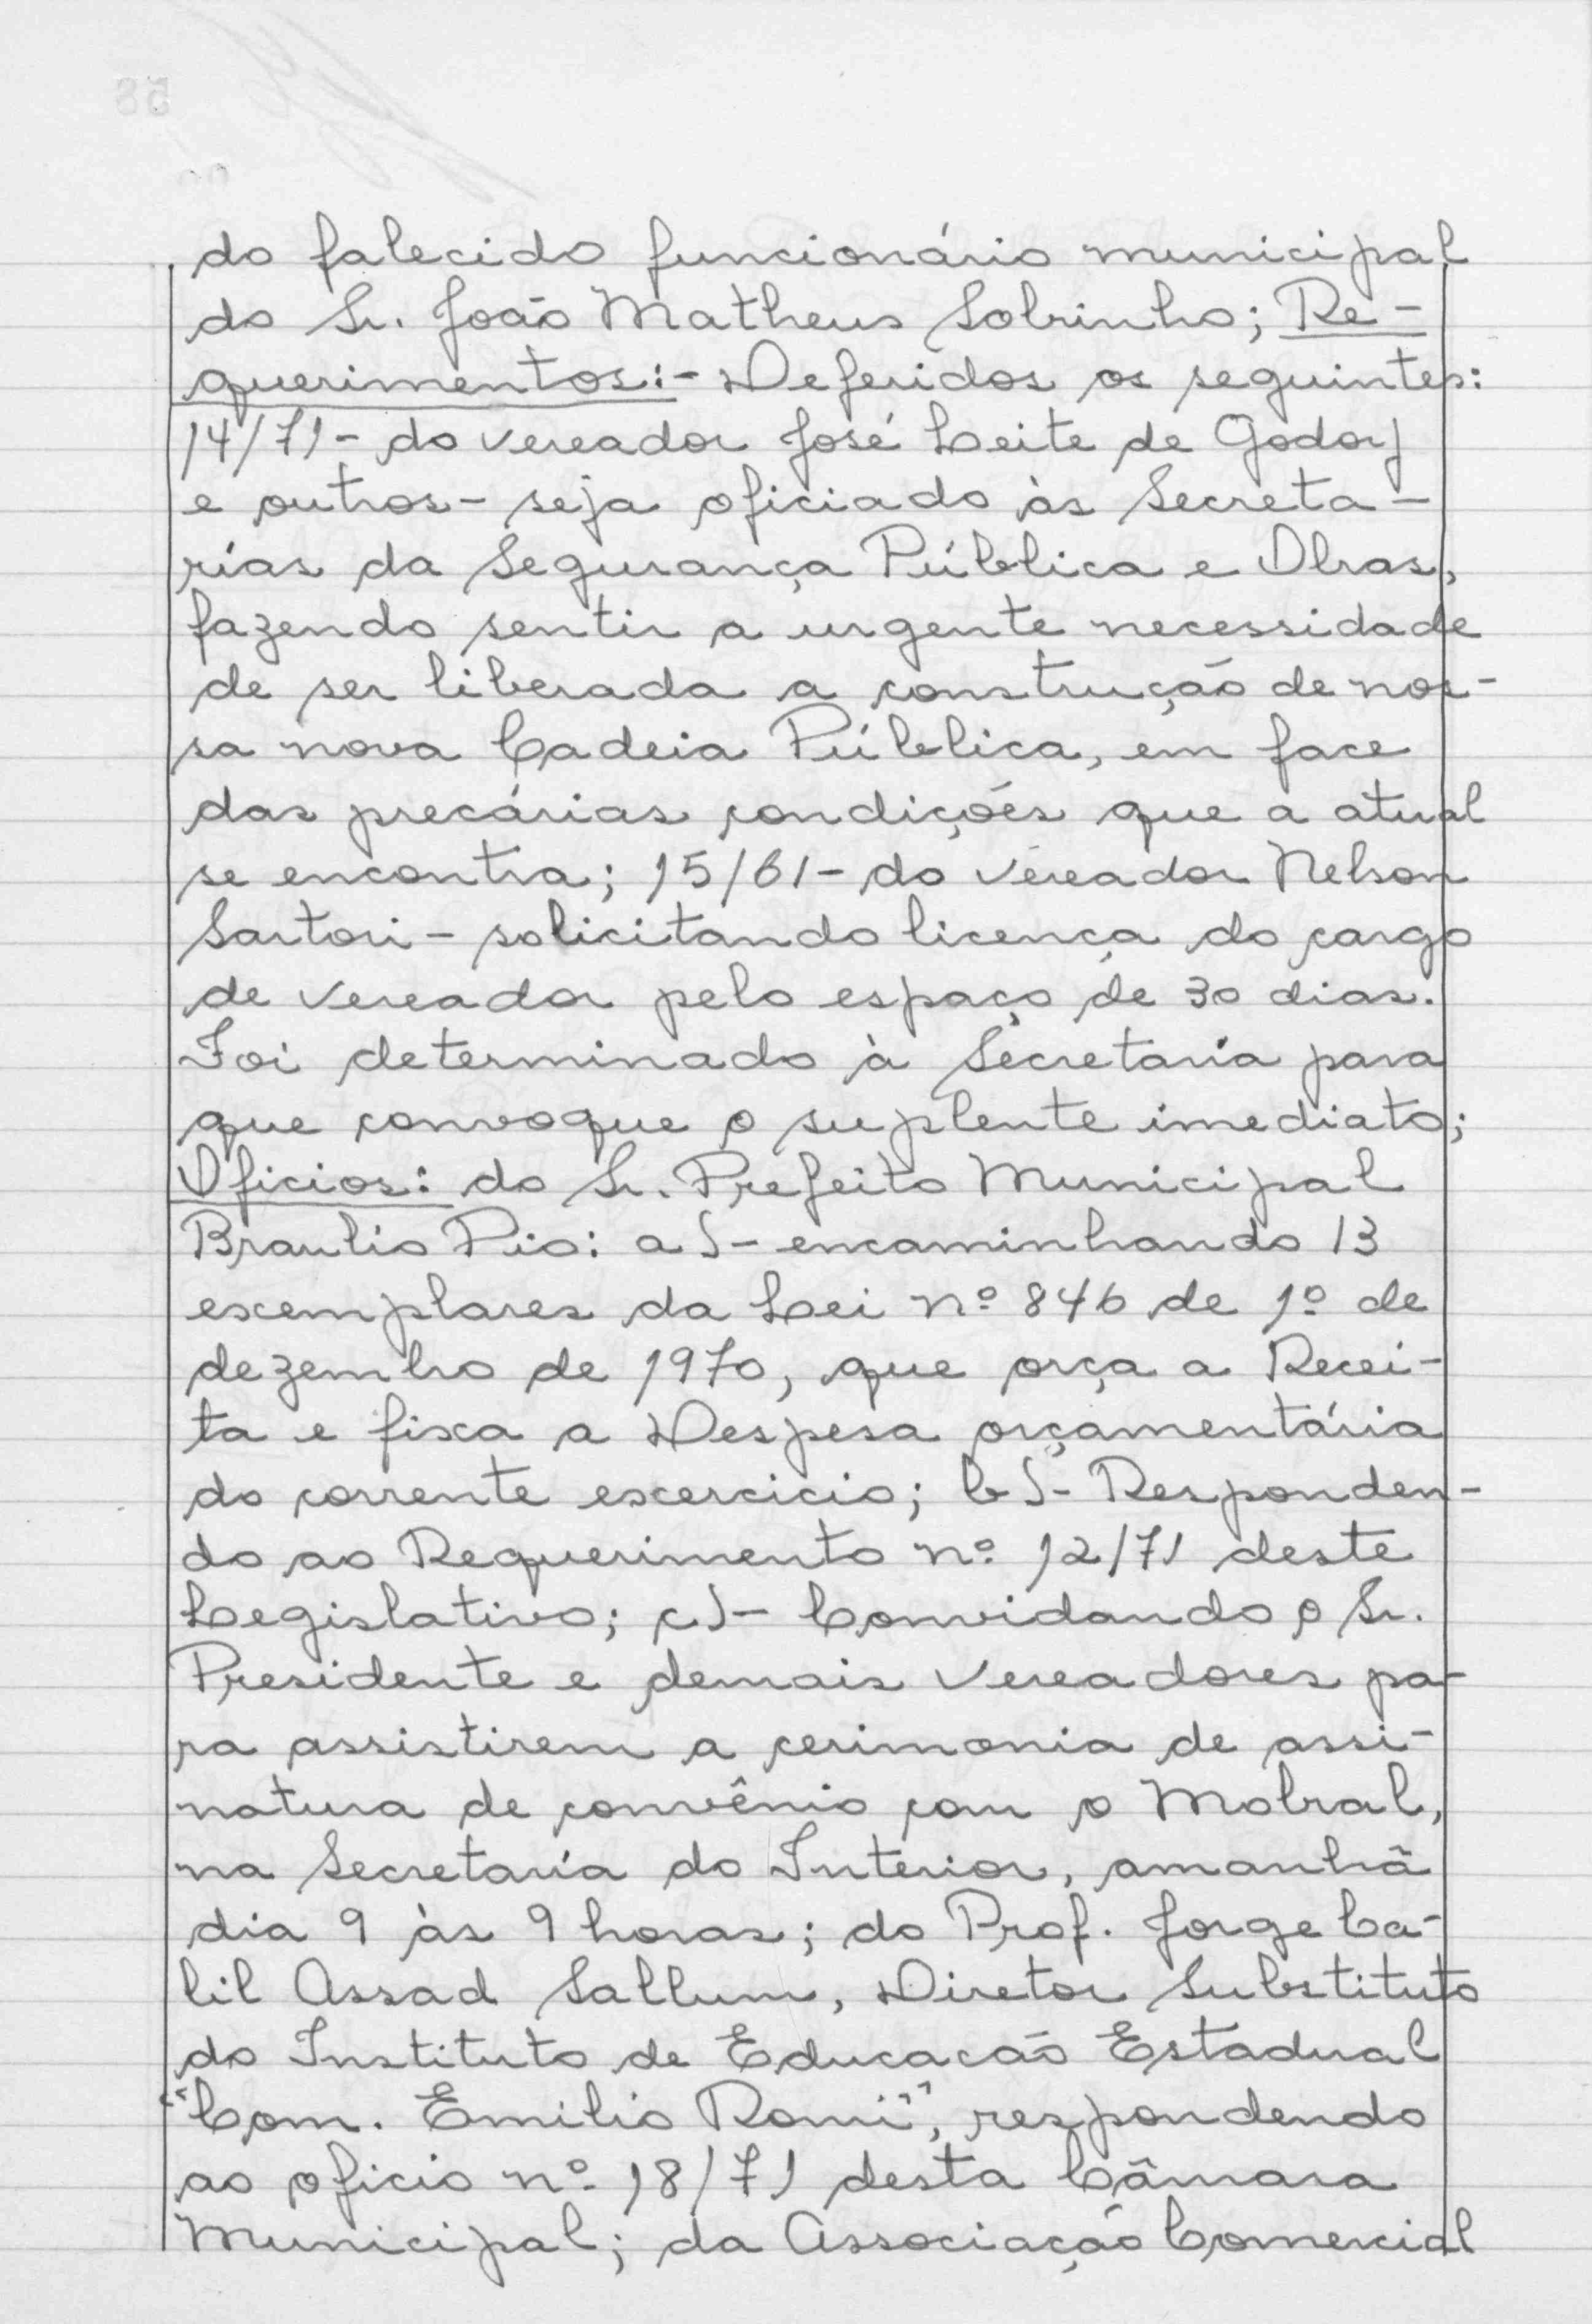 do falecido funcionário municipal
do Sr. João Matheus Sobrinho; Re-
querimentos:- Deferidos os seguintes:
14/71- do vereador José Leite de Godoy
e outros- seja oficiado às Secreta-
rias da Segurança Pública e Obras,
fazendo sentir a urgente necessidade
de ser liberada a construção de nos-
sa nova Cadeia Pública, em face
das precárias condições que a atual
se encontra; 15/61- do vereador Nelson
Sartori- solicitando licença do cargo
de vereador pelo espaço de 30 dias.
Foi determinado à Secretaria para
que convoque o suplente imediato;
Oficios: do Sr. Prefeito Municipal
Braulio Pio: a)- encaminhando 13
exemplares da Lei nº 846 de 1º de
dezembro de 1970, que orça a Recei-
ta e fixa a Despesa orçamentária
do corrente excercicio; b)- Responden-
do ao Requerimento nº 12/71 deste
Legislativo; c)- Convidando o Sr.
Presidente e demais vereadores pa-
ra assistirem a cerimonia de assi-
natura de convênio com o Mobral,
na Secretaria do Interior, amanhã
dia 9 às 9 horas; do Prof. Jorge Ca-
lil Assad Sallum, Diretor Substituto
do Instituto de Educacão Estadual
"Com. Emilio Romi", respondendo
ao oficio nº 18/71 desta Câmara
Municipal; da Associação Comercial